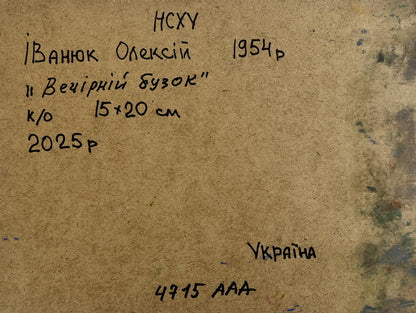 НСХУ
Іванюк Олексій 1954р
„Вечірній бузок"
к/о 15×20 см
2025р
Україна
4715 ААА